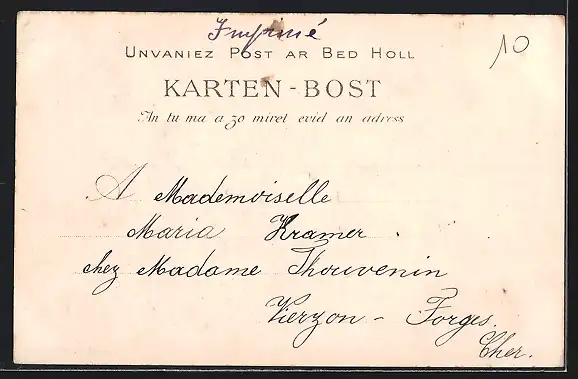 Imprimé
10
UNVANIEZ POST AR BED HOLL
KARTEN-BOST
An tu ma a zo miret evid an adress
A Mademoiselle
Maria Kramer.
chez Madame Thouvenin
Vierzon - Forges.
Cher.